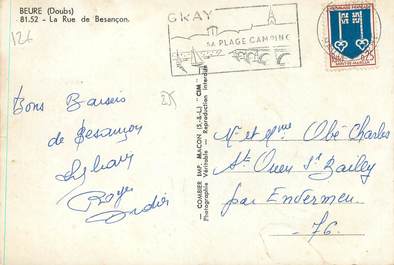 BEURE (Doubs)
81.52 - La Rue de Besançon.
126
GRAY
SA PLAGE CAMPING
REPUBLIQUE FRANÇAISE
0,25
MONT-DE-MARSAN
Bons Baisers
de Besançon
Roger
25
COMBIER IMP. MACON (S.-&-L.) "CIM"
Photographie Véritable - Reproduction interdite
Mr et Mme Obé Charles
St Ouen St Bailley
par Envermeu
76.